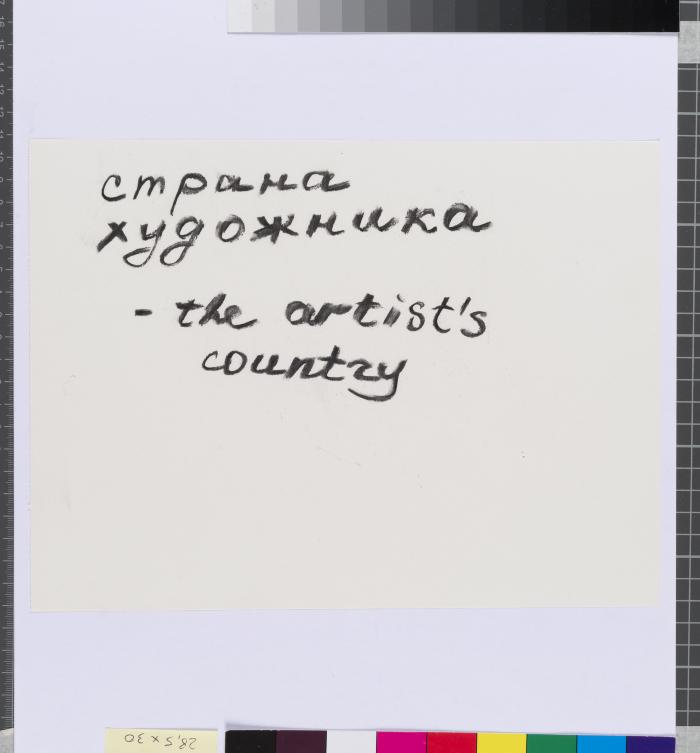 страна
художника
- the artist's
country
28,5 x 30